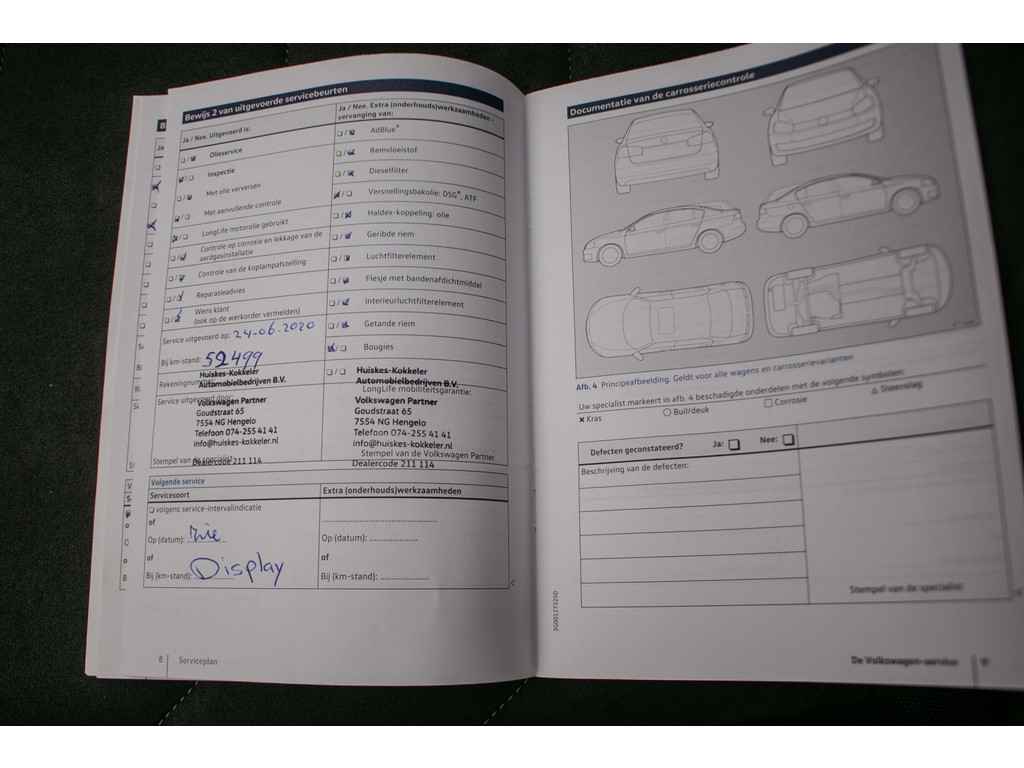 Bewijs 2 van uitgevoerde servicebeurten
Ja / Nee. Uitgevoerd is:
Olieservice
Inspectie
Met olie verversen
Met aanvullende controle
LongLife motorolie gebruikt
Controle op corrosie en lekkage van de
aardgasinstallatie
Controle van de koplampafstelling
Reparatieadvies
Wens klant
(ook op de werkorder vermelden)
Service uitgevoerd op: 24-06-2020
Bij km-stand: 52499
Huiskes-Kokkeler
Automobielbedrijven B.V.
Service uitgevoerd door:
Volkswagen Partner
Goudstraat 65
7554 NG Hengelo
Telefoon 074-255 41 41
info@huiskes-kokkeler.nl
Stempel van de specialist
Dealercode 211 114
Ja / Nee. Extra (onderhouds)werkzaamheden -
vervanging van:
AdBlue®
Remvloeistof
Dieselfilter
Versnellingsbakolie: DSG®, ATF
Haldex-koppeling: olie
Geribde riem
Luchtfilterelement
Flesje met bandenafdichtmiddel
Interieurluchtfilterelement
Getande riem
Bougies
Huiskes-Kokkeler
Automobielbedrijven B.V.
LongLife mobiliteitsgarantie:
Volkswagen Partner
Goudstraat 65
7554 NG Hengelo
Telefoon 074-255 41 41
info@huiskes-kokkeler.nl
Stempel van de Volkswagen Partner
Dealercode 211 114
Volgende service
Servicesoort
volgens service-intervalindicatie
of
Op (datum): zie
of
Bij (km-stand): Display
Extra (onderhouds)werkzaamheden
Op (datum):
of
Bij (km-stand):
8 Serviceplan
Documentatie van de carrosseriecontrole
Afb. 4 Principeafbeelding. Geldt voor alle wagens en carrosserievarianten
Uw specialist markeert in afb. 4 beschadigde onderdelen met de volgende symbolen:
× Kras ○ Buil/deuk □ Corrosie △ Steenslag
Defecten geconstateerd? Ja: Nee:
Beschrijving van de defecten:
Stempel van de specialist
De Volkswagen-service